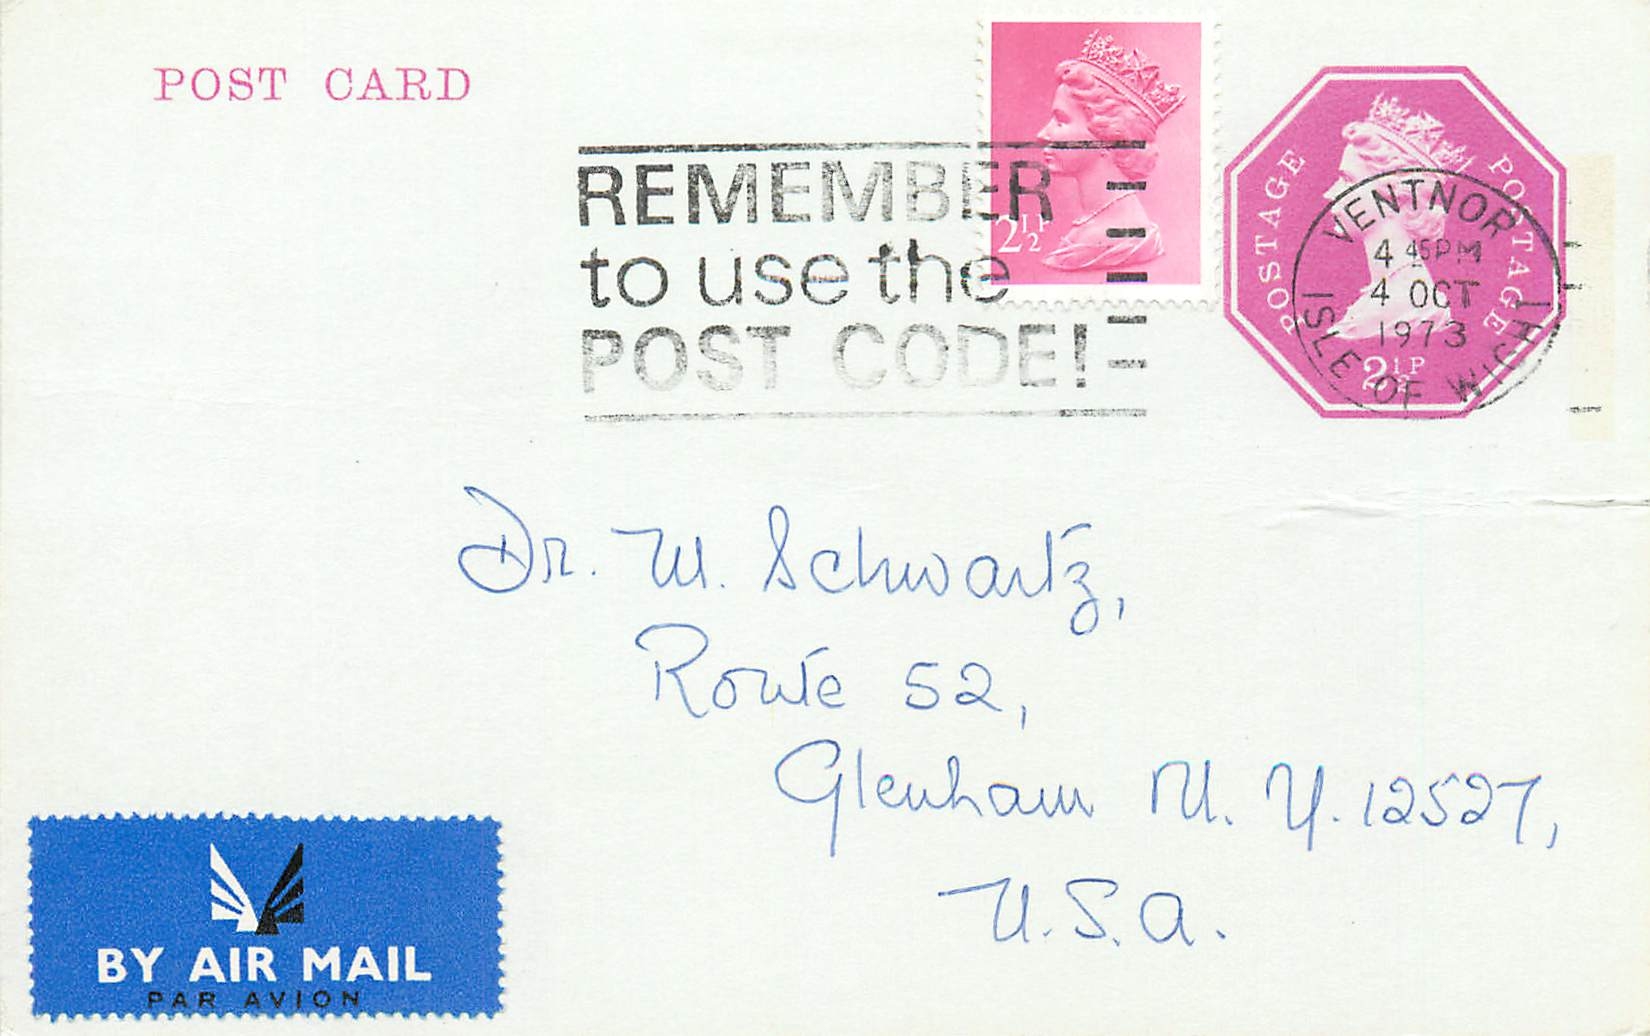 POST CARD
REMEMBER
to use the
POST CODE!
2½P
POSTAGE POSTAGE
2½P
VENTNOR
4 45PM
4 OCT
1973
ISLE OF WIGHT
Dr. W. Schwartz,
Route 52,
Glenham N.Y. 12527,
U.S.A.
BY AIR MAIL
PAR AVION